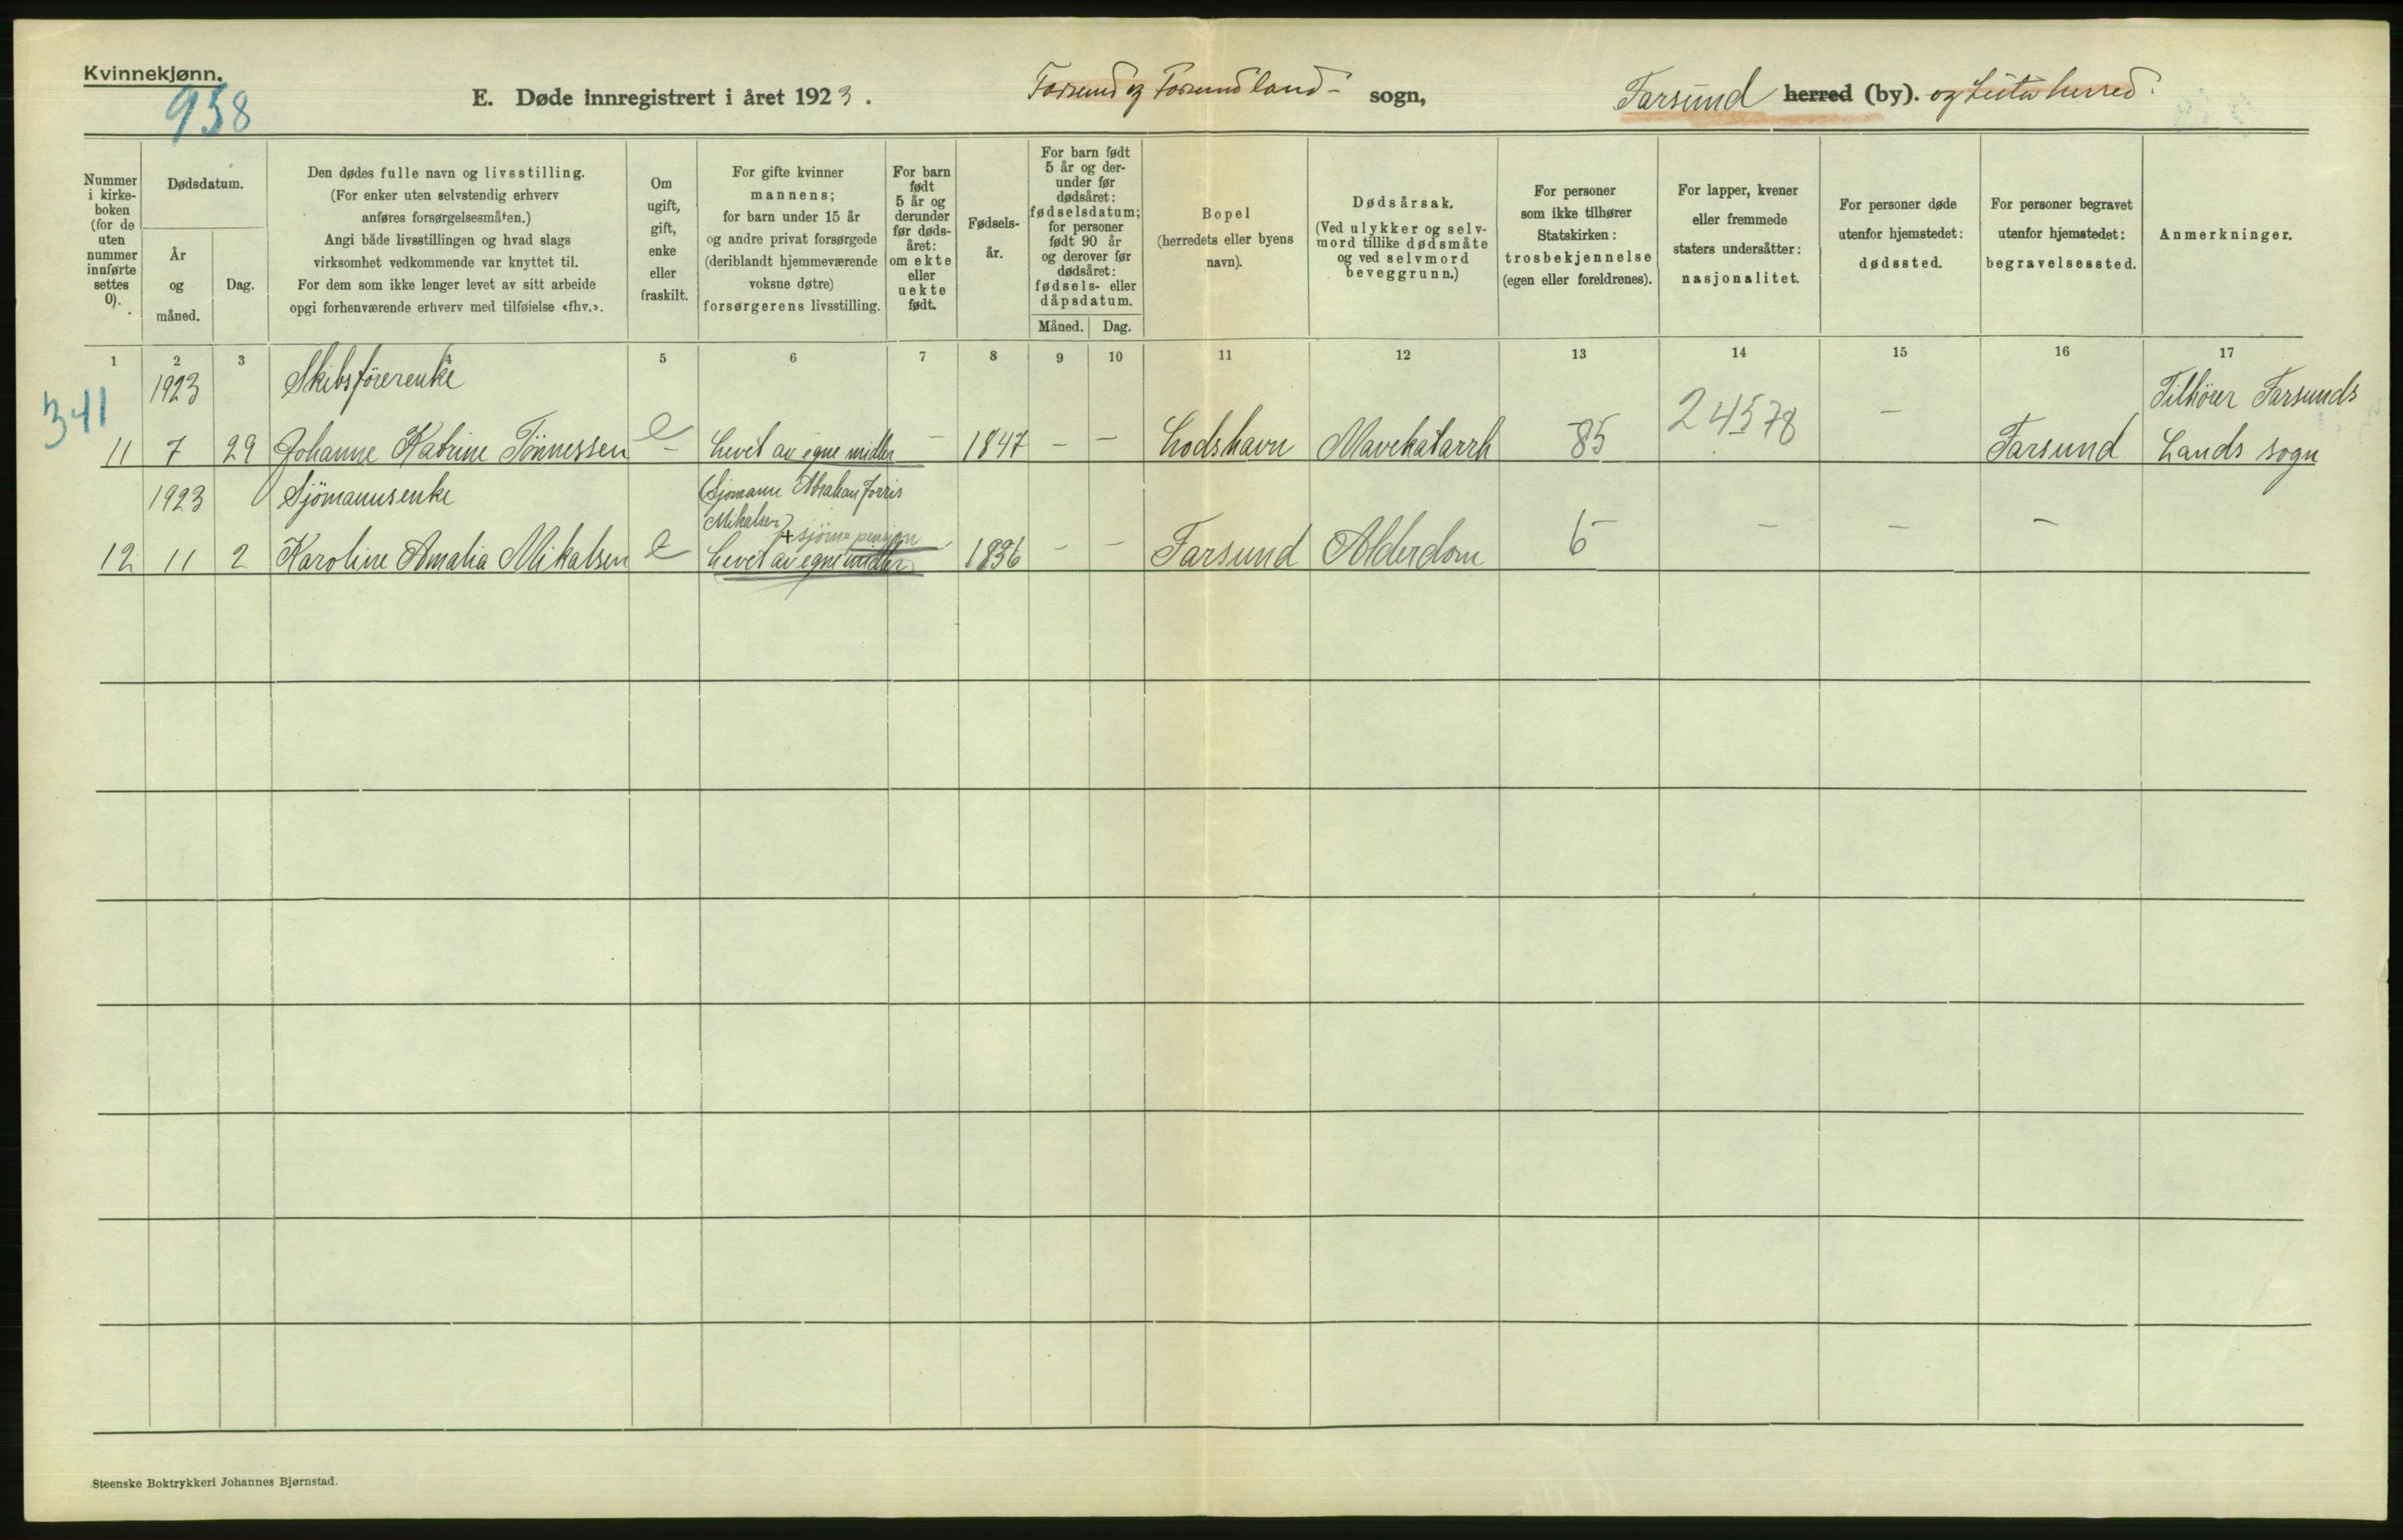 Kvinnekjønn.
958
E. Døde innregistrert i året 1923.
Farsund og Farsund land- sogn,
Farsund herred (by). og Lista herred.
Nummer i kirke- boken (for de uten nummer innførte settes 0).
Dødsdatum.
År og måned.
Dag.
Den dødes fulle navn og livsstilling.
(For enker uten selvstendig erhverv
anføres forsørgelsesmåten.)
Angi både livsstillingen og hvad slags
virksomhet vedkommende var knyttet til.
For dem som ikke lenger levet av sitt arbeide
opgi forhenværende erhverv med tilføielse «fhv.».
Om
ugift,
gift,
enke
eller
fraskilt.
For gifte kvinner
mannens;
for barn under 15 år
og andre privat forsørgede
(deriblandt hjemmeværende
voksne døtre)
forsørgerens livsstilling.
For barn
født
5 år og
derunder
før døds-
året:
om ekte
eller
uekte
født.
Fødsels-
år.
For barn født
5 år og der-
under før
dødsåret:
fødselsdatum;
for personer
født 90 år
og derover før
dødsåret:
fødsels- eller
dåpsdatum.
Måned. Dag.
Bopel
(herredets eller byens
navn).
Dødsårsak.
(Ved ulykker og selv-
mord tillike dødsmåte
og ved selvmord
beveggrunn.)
For personer
som ikke tilhører
Statskirken:
trosbekjennelse
(egen eller foreldrenes).
For lapper, kvener
eller fremmede
staters undersåtter:
nasjonalitet.
For personer døde
utenfor hjemstedet:
dødssted.
For personer begravet
utenfor hjemstedet:
begravelsessted.
Anmerkninger.
1 2 3 4 5 6 7 8 9 10 11 12 13 14 15 16 17
341
1923 Skibsförerenke Tilhører Farsunds
11 7 29 Johanne Katrine Tönnessen e - Levet av egne midler - 1847 - - Lodshavn Mavekatarrh 85 24578 - Farsund Lands sogn
1923 Sjömannsenke (Sjømann Abraham Jorris
Mikalsen)
+ sjöm= pensjon
12 11 2 Karoline Amalia Mikalsen e Levet av egne midler - 1836 - - Farsund Alderdom 6 - - -
Steenske Boktrykkeri Johannes Bjørnstad.